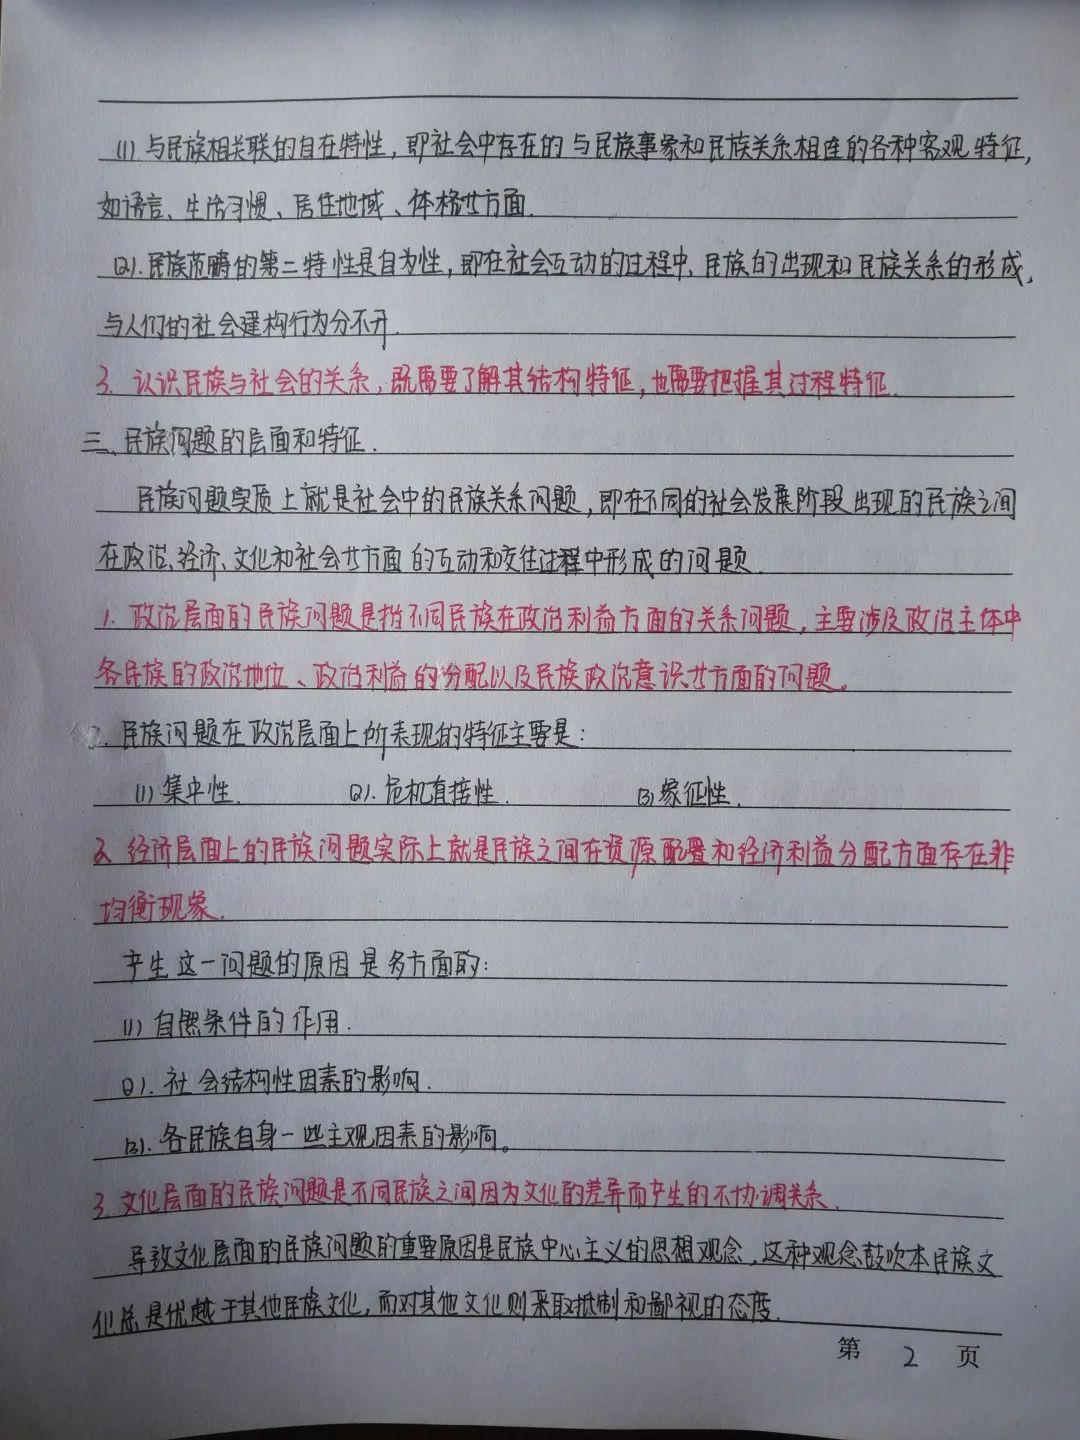 (1)与民族相关联的自在特性，即社会中存在的与民族事象和民族关系相连的各种客观特征，
如语言、生活习惯、居住地域、体格廿方面.
(2).民族范畴的第二特性是自为性，即在社会互动的过程中，民族的出现和民族关系的形成，
与人们的社会建构行为分不开.
3. 认识民族与社会的关系，既需要了解其结构特征，也需要把握其过程特征.
三、民族问题的层面和特征.
民族问题实质上就是社会中的民族关系问题，即在不同的社会发展阶段出现的民族之间
在政治、经济、文化和社会廿方面的互动和交往过程中形成的问题.
1. 政治层面的民族问题是指不同民族在政治利益方面的关系问题，主要涉及政治主体中
各民族的政治地位、政治利益的分配以及民族政治意识廿方面的问题。
民族问题在政治层面上所表现的特征主要是：
(1)集中性. (2).危机直接性. (3)象征性.
2. 经济层面上的民族问题实际上就是民族之间在资源配置和经济利益分配方面存在非
均衡现象.
产生这一问题的原因是多方面的：
(1)自然条件的作用.
(2).社会结构性因素的影响.
(3).各民族自身一些主观因素的影响。
3. 文化层面的民族问题是不同民族之间因为文化的差异而产生的不协调关系.
导致文化层面的民族问题的重要原因是民族中心主义的思想观念，这种观念鼓吹本民族文
化总是优越于其他民族文化，而对其他文化则采取抵制和鄙视的态度.
第 2 页